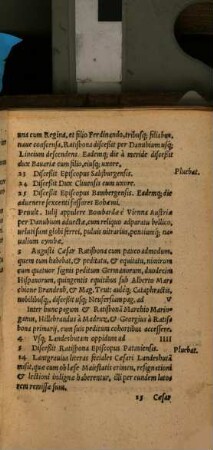 una cum Regina, et filio Ferdinando, tribusq; filiabus,
naue conscensa, Ratisbona discessit per Danubium usq;
Lincium descendens. Eademq; die à meridie discessit
dux Bauariæ cum filio, eiusq; uxore.
23 Discessit Episcopus Salisburgensis. Pluebat.
24 Discessit Dux Cliuensis cum uxore.
25 Discessit Episcopus Bambergensis. Eademq; die
aduenere sexcenti fossores Bohemi.
Penult. Iulij appulere Bombardæ è Vienna Austriæ
per Danubium aduectæ, cum reliquo apparatu bellico,
ut sunt globi ferrei, puluis nitrarius, pontiumq;
naualium cymbæ.
2 Augusti Cæsar Ratisbona cum pauco admodum,
quem tum habebat, & peditatu, & equitatu, nimirum
cum quatuor signis peditum Germanorum, duobus
Hispanorum, quingentis equitibus sub Alberto Marchione
Brandenb. & Mag. Teut. aulæq; Cataphractis,
nobilibusq; discessit usq; Neufersium pag. ad V
Inter hunc pagum & Ratisbonã Marchio
Hillebrandus à Madrutz, & Georgius à Ratisbona
primarij, cum suis peditum cohortibus accessere.
4 Vsq; Landeshutum oppidum ad IIII
5 Discessit Ratisbona Episcopus Patauiensis. Pluebat.
14 Landgrauius literas feciales Cæsari Landeshutũ
misit, quæ cum obesse Maiestatis crimen, resignationi
& lectioni indigna haberentur, illi per eundem
remissæ sunt.
15 Cæsar